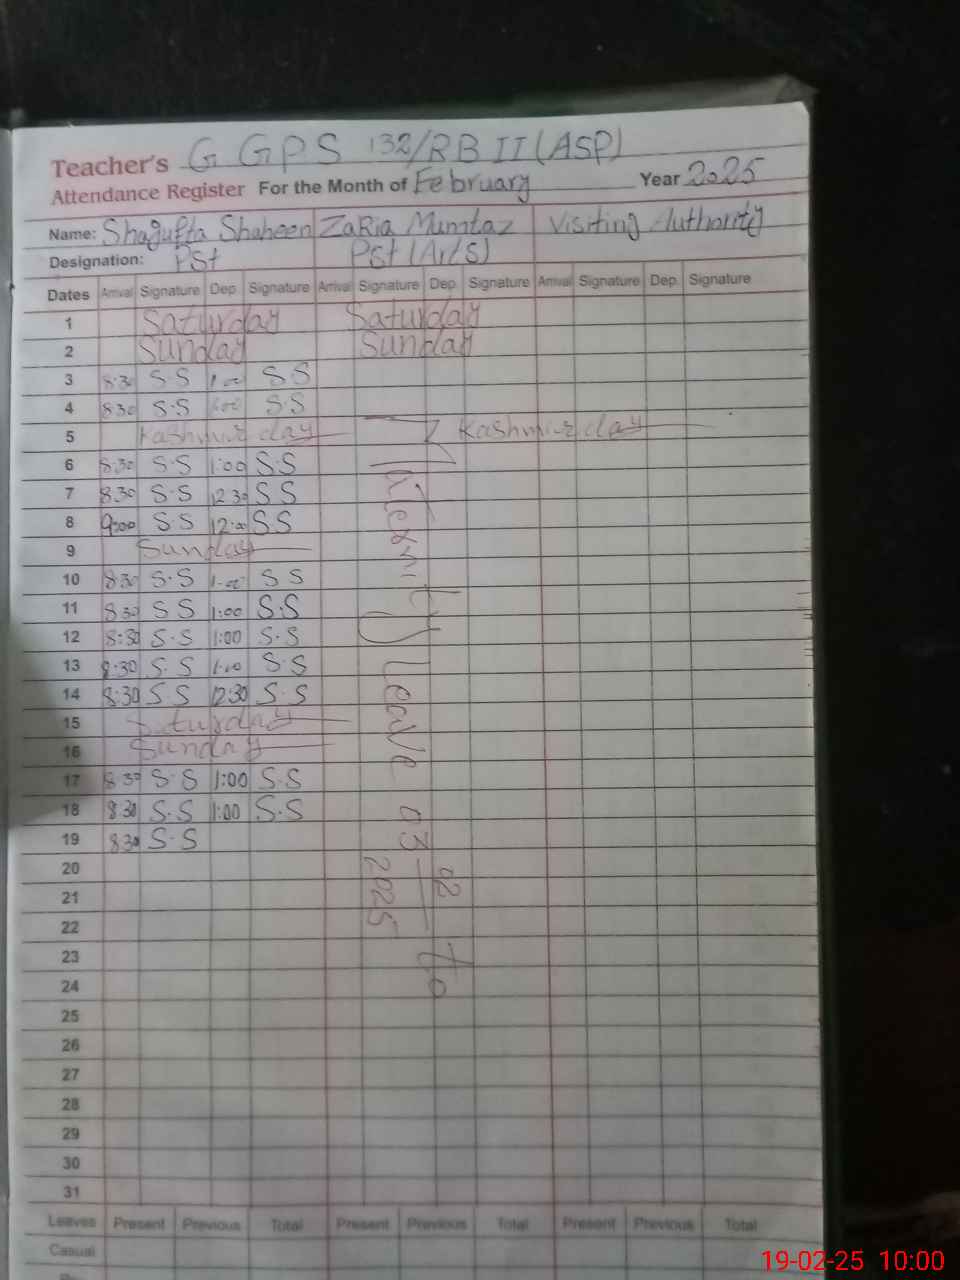 Teacher's G GPS 132/RB II (ASP)
Attendance Register For the Month of February Year 2025
Name: Shagufta Shaheen ZaRia Mumtaz Visiting Authority
Designation: PSt PSt (Arts)
Dates Arrival Signature Dep. Signature Arrival Signature Dep. Signature Arrival Signature Dep. Signature
1 Saturday Saturday
2 Sunday Sunday
3 8:30 S.S 1:00 S.S
4 830 S.S 1:00 S.S
5 Kashmir day Kashmir day
6 8:30 S.S 1:00 S.S
7 8:30 S.S 12 30 S S
8 9:00 S S 12:00 S S
9 Sunday
10 8:30 S.S 1:00 S S
11 8:30 S S 1:00 S.S
12 8:30 S.S 1:00 S.S
13 8:30 S.S 1:00 S.S
14 8:30 S S 12:30 S.S
15 Saturday
16 Sunday
17 8 30 S.S 1:00 S.S
18 8 30 S.S 1:00 S.S
19 830 S.S
20
21
22
23
24
25
26
27
28
29
30
31
leave 03/02 to
2025
Leaves Present Previous Total Present Previous Total Present Previous Total
Casual
19-02-25 10:00